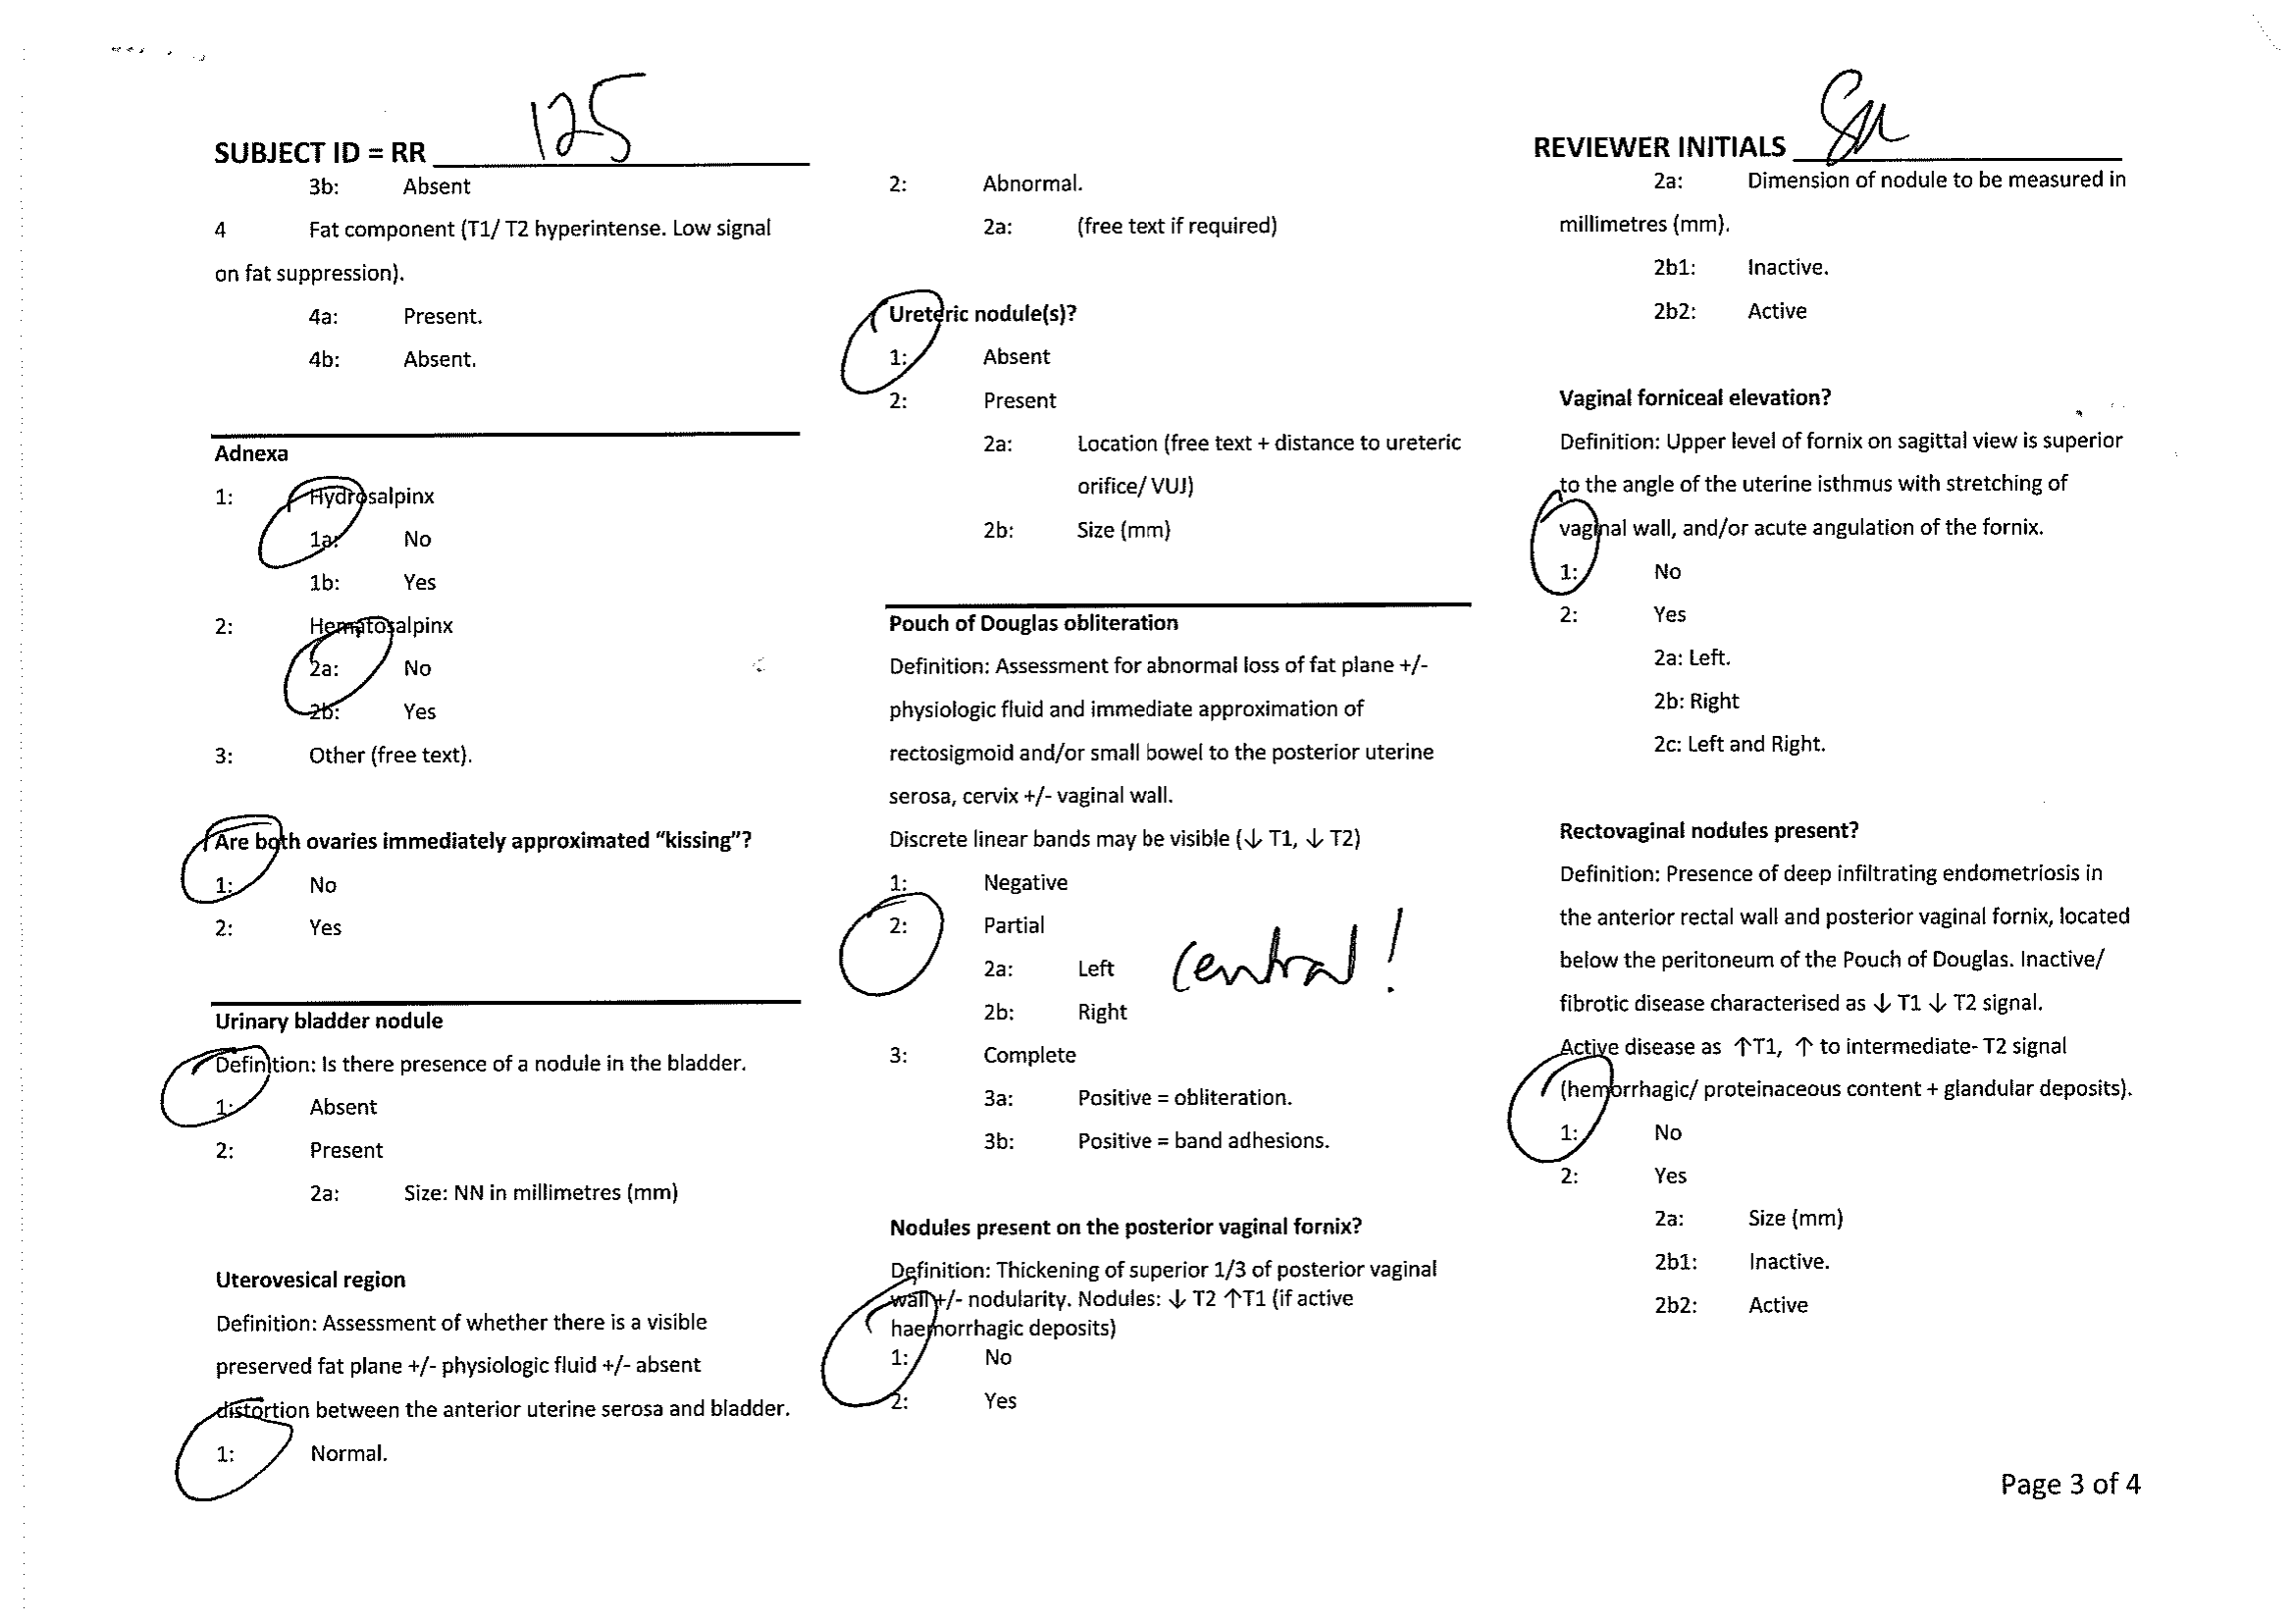 SUBJECT ID = RR 125
3b: Absent
4 Fat component (T1/ T2 hyperintense. Low signal
on fat suppression).
4a: Present.
4b: Absent.
Adnexa
1: Hydrosalpinx
1a: No
1b: Yes
2: Hematosalpinx
2a: No
2b: Yes
3: Other (free text).
Are both ovaries immediately approximated “kissing”?
1: No
2: Yes
Urinary bladder nodule
Definition: Is there presence of a nodule in the bladder.
1: Absent
2: Present
2a: Size: NN in millimetres (mm)
Uterovesical region
Definition: Assessment of whether there is a visible
preserved fat plane +/- physiologic fluid +/- absent
distortion between the anterior uterine serosa and bladder.
1: Normal.
2: Abnormal.
2a: (free text if required)
Ureteric nodule(s)?
1: Absent
2: Present
2a: Location (free text + distance to ureteric
orifice/ VUJ)
2b: Size (mm)
Pouch of Douglas obliteration
Definition: Assessment for abnormal loss of fat plane +/-
physiologic fluid and immediate approximation of
rectosigmoid and/or small bowel to the posterior uterine
serosa, cervix +/- vaginal wall.
Discrete linear bands may be visible (↓ T1, ↓ T2)
1: Negative
2: Partial
2a: Left central!
2b: Right
3: Complete
3a: Positive = obliteration.
3b: Positive = band adhesions.
Nodules present on the posterior vaginal fornix?
Definition: Thickening of superior 1/3 of posterior vaginal
wall +/- nodularity. Nodules: ↓ T2 ↑T1 (if active
haemorrhagic deposits)
1: No
2: Yes
REVIEWER INITIALS
2a: Dimension of nodule to be measured in
millimetres (mm).
2b1: Inactive.
2b2: Active
Vaginal forniceal elevation?
Definition: Upper level of fornix on sagittal view is superior
to the angle of the uterine isthmus with stretching of
vaginal wall, and/or acute angulation of the fornix.
1: No
2: Yes
2a: Left.
2b: Right
2c: Left and Right.
Rectovaginal nodules present?
Definition: Presence of deep infiltrating endometriosis in
the anterior rectal wall and posterior vaginal fornix, located
below the peritoneum of the Pouch of Douglas. Inactive/
fibrotic disease characterised as ↓ T1 ↓ T2 signal.
Active disease as ↑T1, ↑ to intermediate- T2 signal
(hemorrhagic/ proteinaceous content + glandular deposits).
1: No
2: Yes
2a: Size (mm)
2b1: Inactive.
2b2: Active
Page 3 of 4